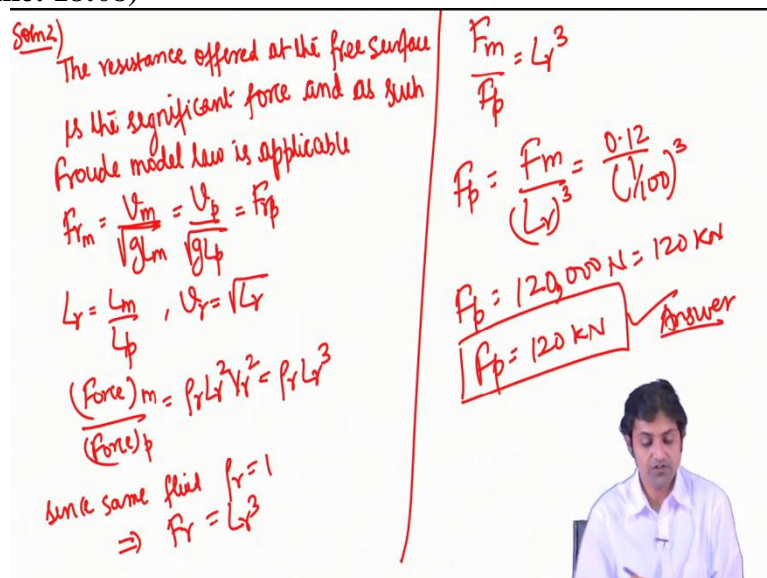 Soln 2)
The resistance offered at the free surface
is the significant force and as such
froude model law is applicable
Frm = Vm/√gLm = Vp/√gLp = Frp
Lr = Lm/Lp , Vr = √Lr
(Force)m/(Force)p = ρr Lr² Vr² = ρr Lr³
since same fluid ρr = 1
⇒ Fr = Lr³
Fm/Fp = Lr³
Fp = Fm/(Lr)³ = 0.12/(1/100)³
Fp = 120,000 N = 120 KN
Fp = 120 KN Answer